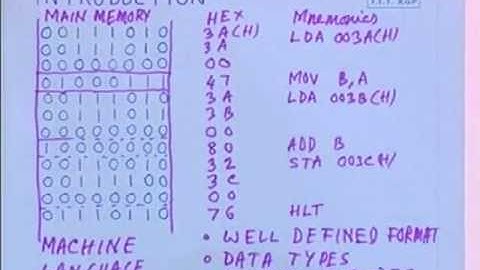 INTRODUCTION
I.I.T. KGP
MAIN MEMORY HEX Mnemonics
0 0 1 1 1 0 1 0 3A(H) LDA 003A(H)
0 0 1 1 1 0 1 0 3A
0 0 0 0 0 0 0 0 00
0 1 0 0 0 1 1 1 47 MOV B,A
0 0 1 1 1 0 1 0 3A LDA 003B(H)
0 0 1 1 1 0 1 1 3B
0 0 0 0 0 0 0 0 00
1 0 0 0 0 0 0 0 80 ADD B
0 0 1 1 0 0 1 0 32 STA 003C(H)
0 0 1 1 1 1 0 0 3C
0 0 0 0 0 0 0 0 00
0 1 1 1 0 1 1 0 76 HLT
MACHINE • WELL DEFINED FORMAT
LANGUAGE • DATA TYPES